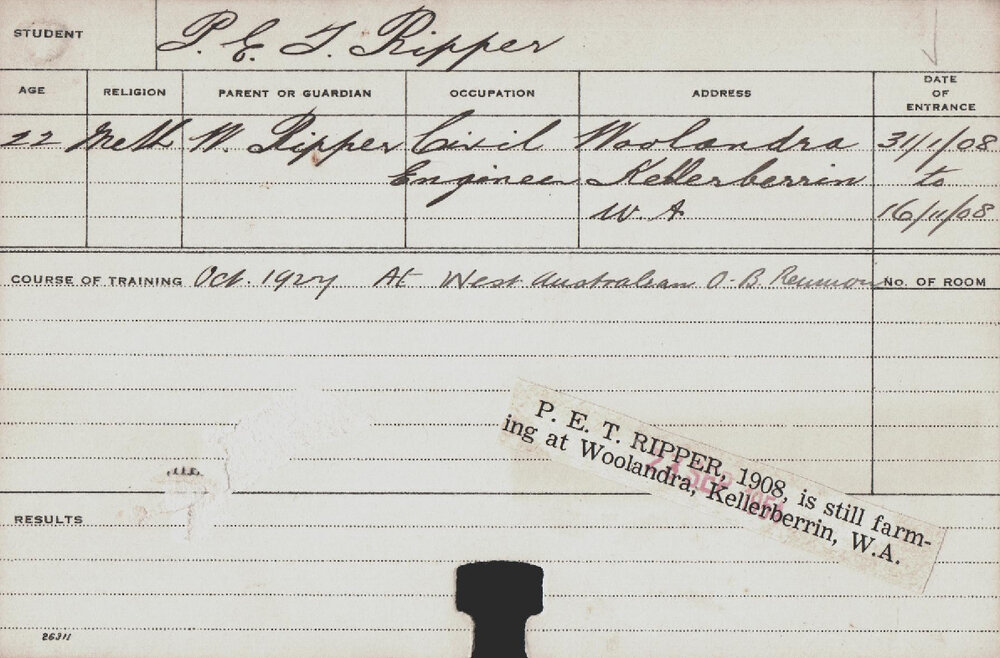 STUDENT P. E. T. Ripper
AGE RELIGION PARENT OR GUARDIAN OCCUPATION ADDRESS DATE OF ENTRANCE
22 Meth W. Ripper Civil Woolandra 31/1/08
Engineer Kellerberrin to
W. A 16/11/08
COURSE OF TRAINING Oct. 1927 At West Australian O-B Reunion NO. OF ROOM
P. E. T. RIPPER, 1908, is still farm-
ing at Woolandra, Kellerberrin, W.A.
RESULTS
26311